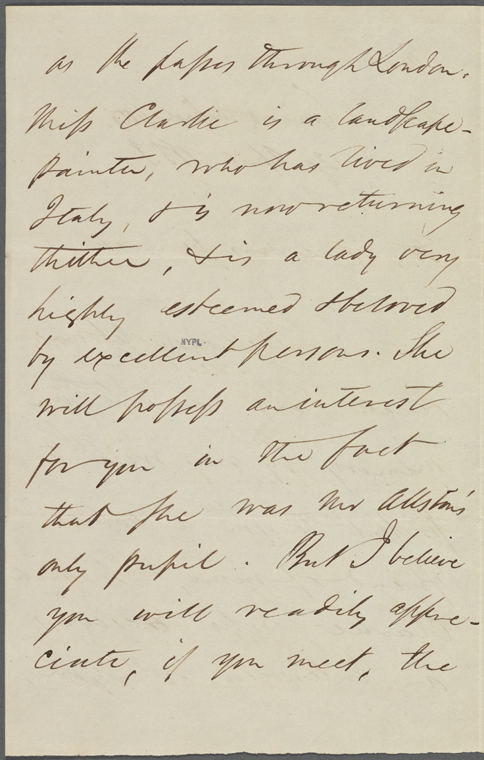 as she passes through London.
Miss Clarke is a landscape-
painter, who has lived in
Italy, & is now returning
thither, & is a lady very
highly esteemed & beloved
by excellent persons. She
NYPL
will possess an interest
for you in the fact
that she was Mr Allston's
only pupil. But I believe
you will readily appre-
ciate, if you meet, the